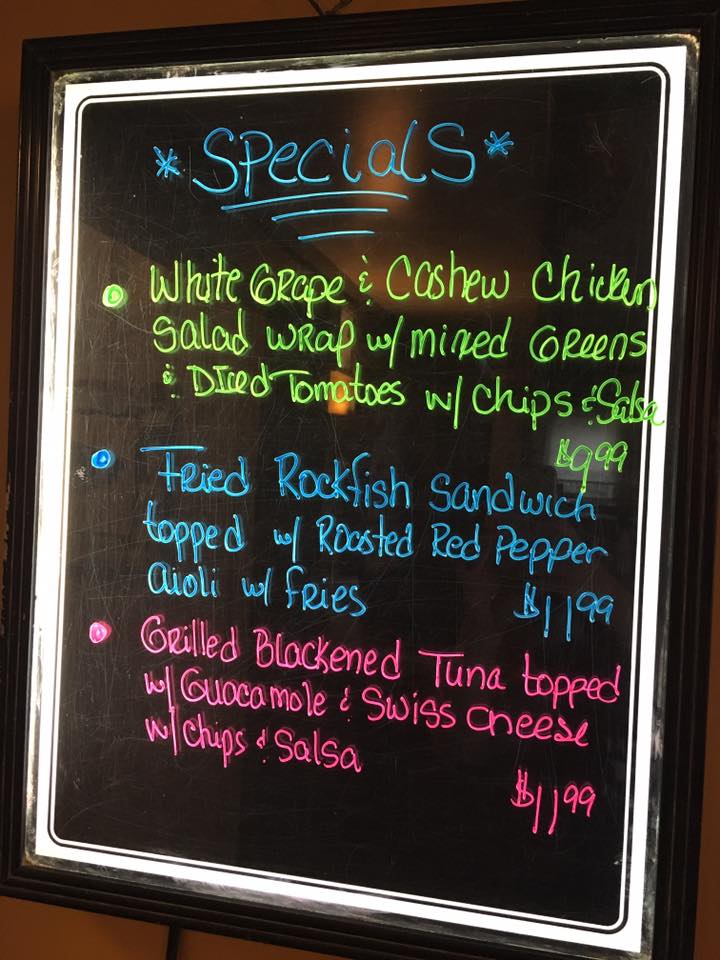 *Specials*
White Grape & Cashew Chicken
Salad Wrap w/ mixed Greens
& Diced Tomatoes w/ Chips & Salsa
$9.99
Fried Rockfish Sandwich
topped w/ Roasted Red Pepper
aioli w/ fries $11.99
Grilled Blackened Tuna topped
w/ Guacamole & Swiss Cheese
w/ Chips & Salsa
$11.99